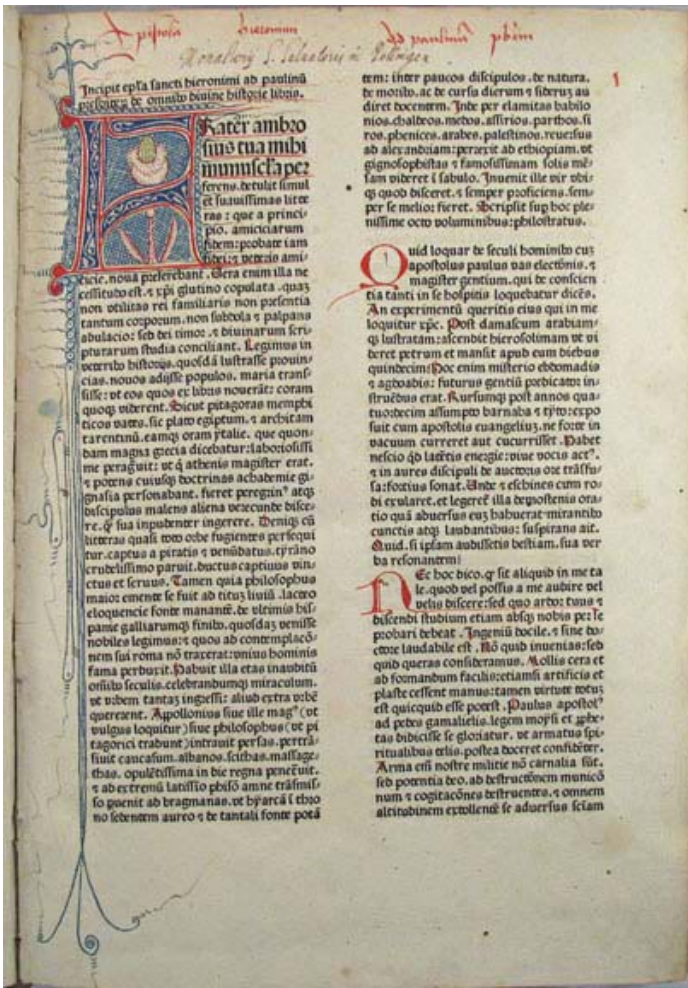 Epistola Hieronimi Ad paulinum pbrm
Monasterij S. Saluatoris in Pollingen
Incipit epl'a sancti hieronimi ad paulinū
presbiterū de omnibꝰ diuine historie libris.
FRater ambro
sius tua mihi
munuscl'a per
ferens. detulit simul
et suauissimas litte
ras: que a princi-
pio. amiciciarum
fidem: probate iam
fidei: ⁊ veteris ami-
cicie. noua preferebant. Uera enim illa ne
cessitudo est. ⁊ xp̄i glutino copulata. quaꝫ
non vtilitas rei familiaris non presentia
tantum corporum. non subdola ⁊ palpans
adulacio: sed dei timor. ⁊ diuinarum scri-
pturarum studia conciliant. Legimus in
veteribꝰ historijs. quosdā lustrasse prouin-
cias. nouos adijsse populos. maria trans-
sisse: vt eos quos ex libris nouerāt: coram
quoqꝫ viderent. Sicut pitagoras memphi
ticos vates. sic plato egiptum. ⁊ architam
tarentinū. eamqꝫ oram ytalie. que quon-
dam magna grecia dicebatur: laboriosissi
me peragͣuit: vt q̇ athenis magister erat.
⁊ potens cuiusqꝫ doctrinas achademie gi-
gnasia personabant. fieret peregrinꝰ atqꝫ
discipulus malens aliena verecunde disce-
re. q̄ꝫ sua inpudenter ingerere. Deniqꝫ cū
litteras quasi toto orbe fugientes persequi
tur. captus a piratis ⁊ venūdatus. tyrāno
crudelissimo paruit. ductus captiuus vin-
ctus et seruus. Tamen quia philosophus
maior emente se fuit ad titū liuiū. lacteo
eloquencie fonte manantē. de vltimis his-
panie galliarumqꝫ finibꝰ. quosdaꝫ venisse
nobiles legimus: ⁊ quos ad contemplacō-
nem sui roma nō traxerat: vnius hominis
fama perduxit. Habuit illa etas inauditū
om̄ibꝰ seculis. celebrandumqꝫ miraculum.
vt vrbem tantaꝫ ingressi: aliud extra vrbē
quererent. Appollonius siue ille magꝰ (vt
vulgus loquitur) siue philosophus (vt pi
tagorici tradunt) intrauit persas. pertrā-
siuit caucasum. albanos. scithas. massage-
thas. opulētissima indie regna penetͣuit.
⁊ ad extremū latissīo phisō amne trāsmis-
so puenit ad bragmanas. vt hyarcā ī thro
no sedentem aureo ⁊ de tantali fonte potā
tem: inter paucos discipulos. de natura.
de moribꝰ. ac de cursu dierum ⁊ siderū au
diret docentem. Inde per elamitas babilo
nios. chaldeos. medos. assirios. parthos. si
ros. phenices. arabes. palestinos. reuersus
ad alexandriam: perexit ad ethiopiam. vt
gignosophistas ⁊ famosissimam solis mē-
sam videret ī sabulo. Inuenit ille vir vbi-
qꝫ quod disceret. ⁊ semper proficiens. sem-
per se melior fieret. Scripsit suꝑ hoc ple-
nissime octo voluminibus: philostratus.
Quid loquar de seculi hominibꝰ cuꝫ
apostolus paulus vas electōnis. ⁊
magister gentium. qui de conscien
tia tanti in se hospitis loquebatur dicēs.
An experimentū queritis eius qui in me
loquitur xp̄c. Post damascum arabiam-
qꝫ lustratam: ascendit hierosolimam vt vi
deret petrum et mansit apud eum diebus
quindecim: Hoc enim misterio ebdomadis
⁊ agdoadis: futurus gentiū predicator in-
struēdus erat. Rursumqꝫ post annos qua-
tuordecim assumpto barnaba ⁊ tyto: expo
suit cum apostolis euangeliuꝫ. ne forte in
vacuum curreret aut cucurrisset. Habet
nescio qd lacētis energie: viue vocis actꝰ.
⁊ in aures discipuli de auctoris ore trāsfu-
sa: fortius sonat. Unde ⁊ eschines cum ro-
di exularet. et legeret illa demostenis ora-
tio quā aduersus euꝫ habuerat mirantibꝰ
cunctis atqꝫ laudantibus: suspirans ait.
Quid. si ipsam audissetis bestiam. sua ver
ba resonantem!
NEc hoc dico. ꝙ sit aliquid in me ta
le. quod vel possis a me audire vel
velis discere: sed quo ardor tuus ⁊
discendi studium etiam absqꝫ nobis per se
probari debeat. Ingeniū docile. ⁊ sine do-
ctore laudabile est. Nō quid inuenias: sed
quid queras consideramus. Mollis cera et
ad formandum facilis: etiamsi artificis et
plaste cessent manus: tamen virtute totuꝫ
est quicquid esse potest. Paulus apostolꝰ
ad pedes gamalielis. legem moysi et ꝓphe-
tas didicisse se gloriatur. vt armatus spi-
ritualibus telis. postea doceret confidēter.
Arma em̄ nostre militie nō carnalia sūt.
sed potentia deo. ad destructōnem municō
num ⁊ cogitacōnes destruentes. ⁊ omnem
altitudinem extollentē se aduersus sciam